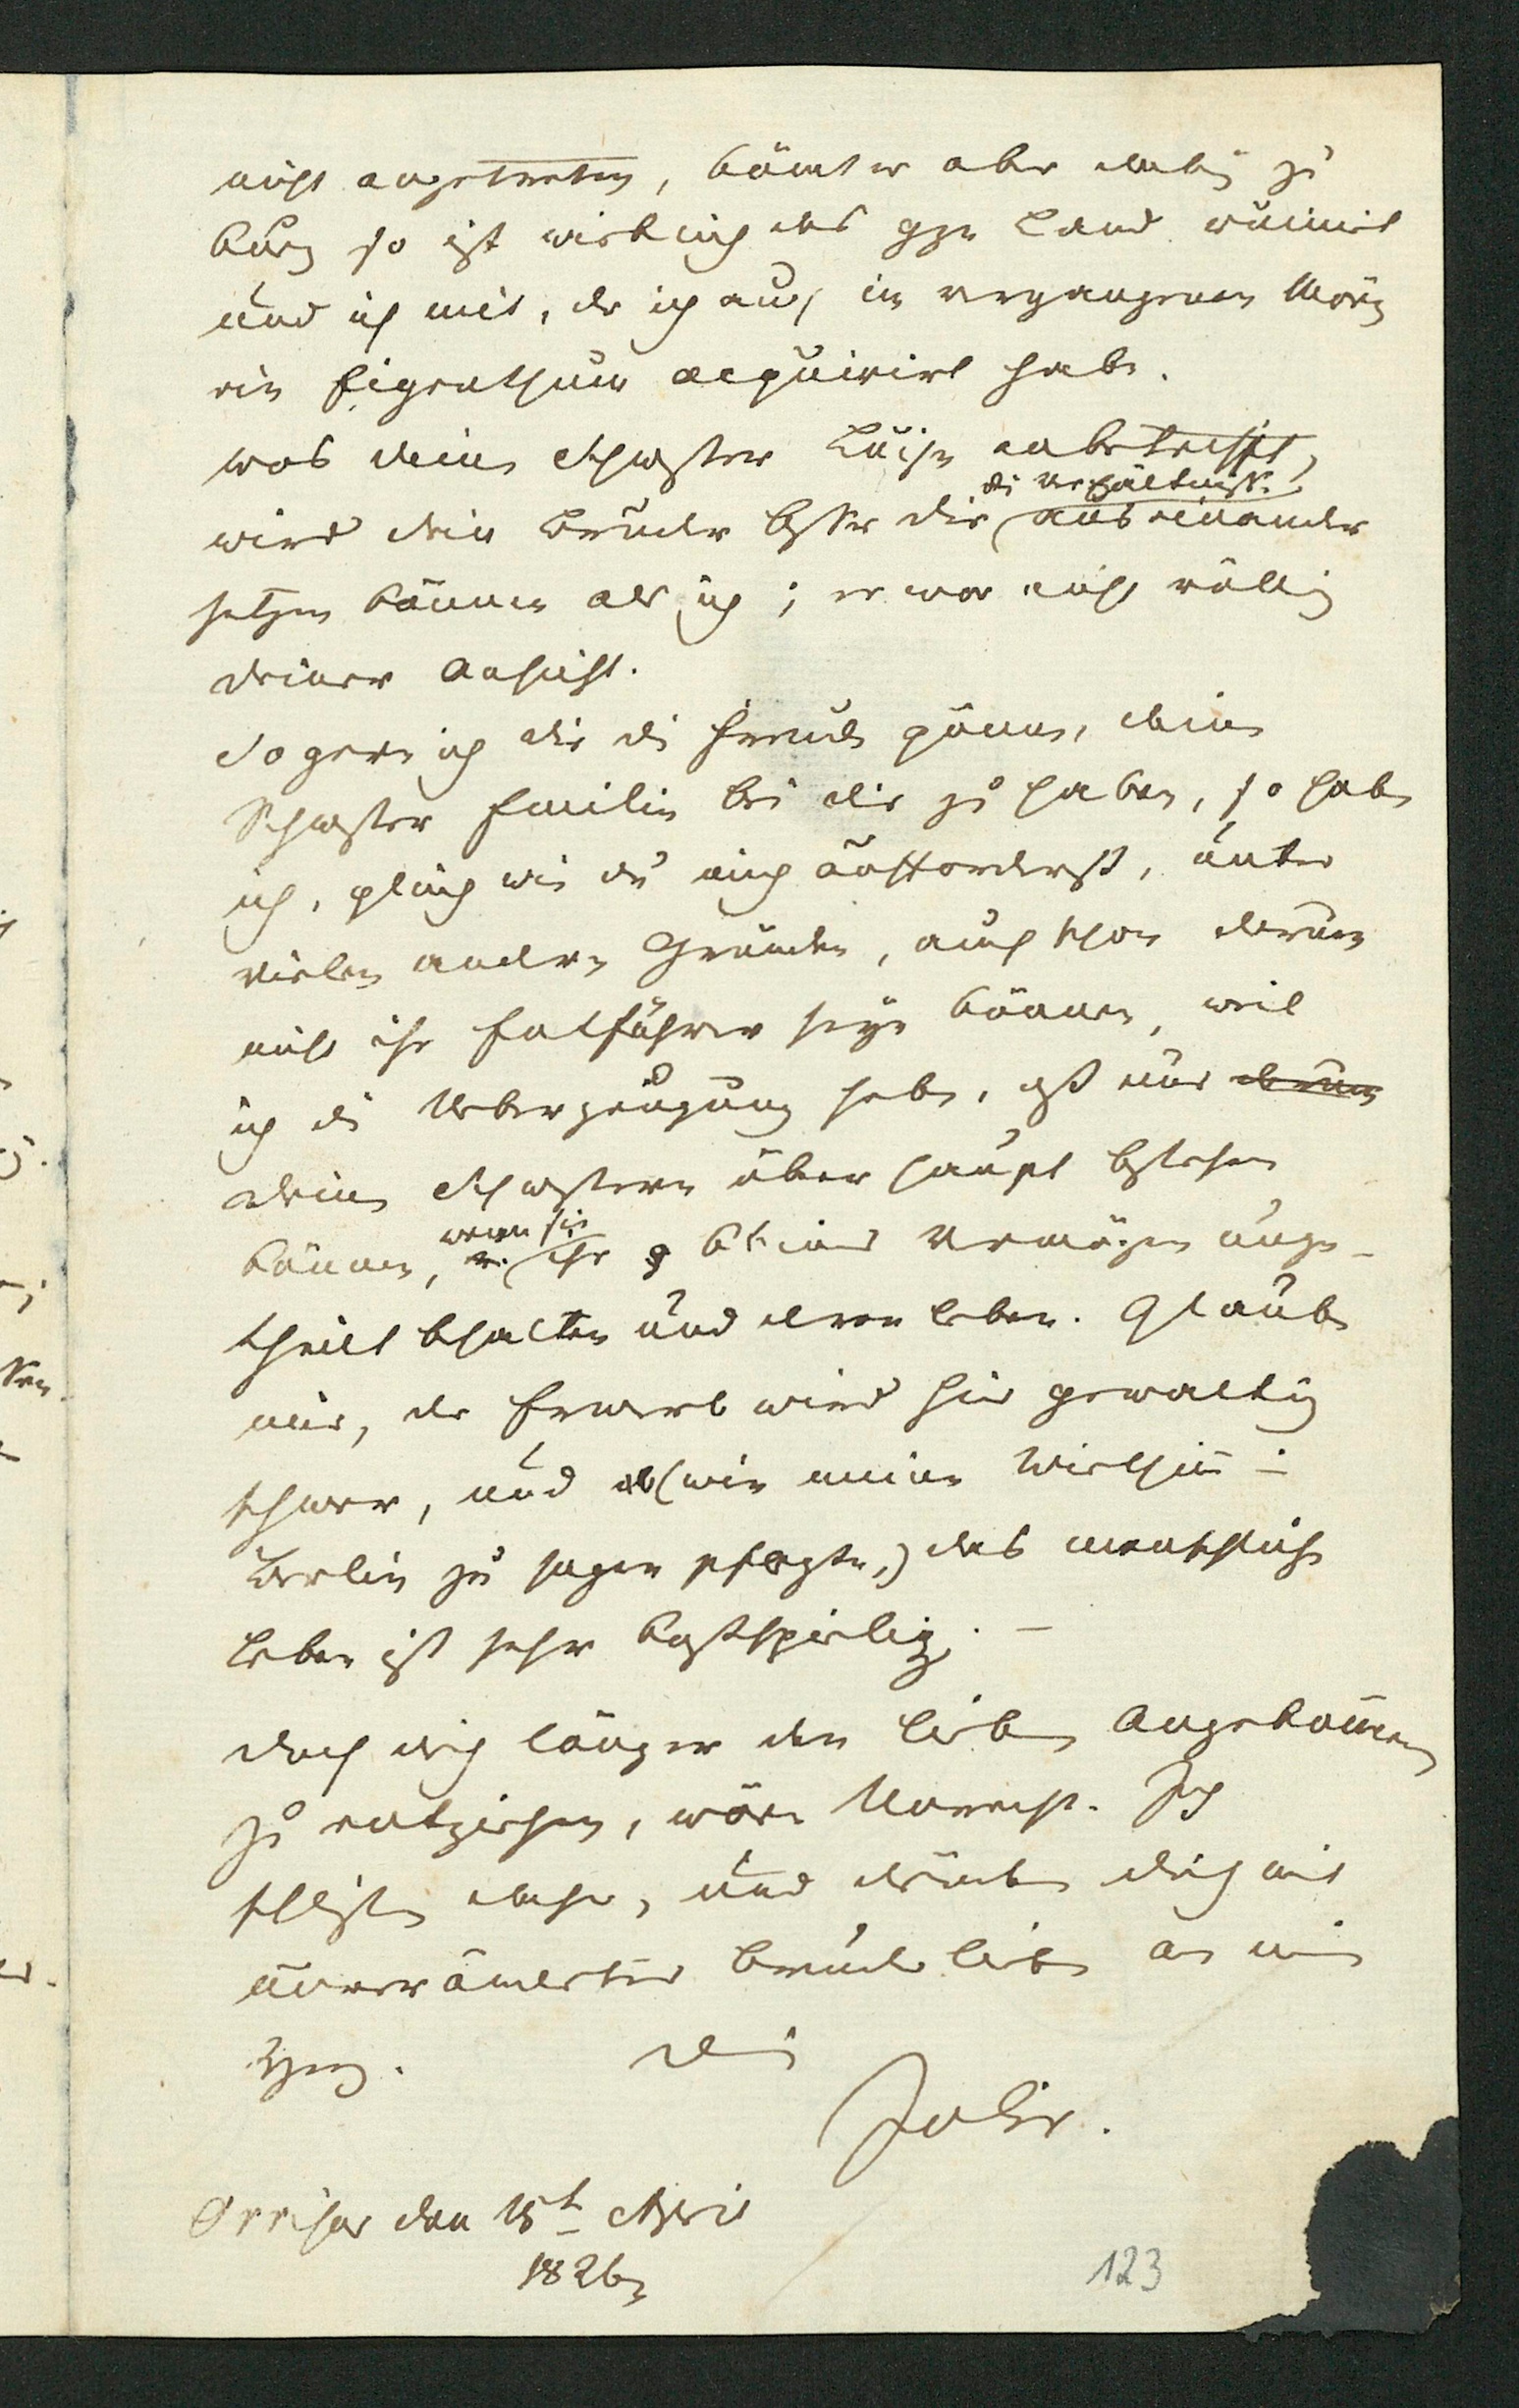 nicht angetreten, kömt er aber dabei zu
kurz so ist wirklich das gze Land ruinirt
und ich mit, da ich auch im vergangenen März
ein Eigenthum acquirirt habe.
was deine Schwester Luise anbetrifft,
wird dein Bruder besser dir die Verhältnisse auseinander
setzen können als ich; er war nicht völlig
deiner Ansicht.
So gern ich dir die Freude gönne, deine
Schwester Emilie bei dir zu haben, so habe
ich, gleich wie du mich aufforderst, unter
vielen andern Gründen, auch schon darum
nicht ihr Entführer seyn können, weil
ich die Ueberzeugung habe, daß nur darum
deine Schwestern überhaupt bestehen
können, wenn sie ihr kleines Vermögen unge-
theilt behalten und davon leben. Glaube
mir, der Erwerb wird hier gewaltig
schwer, und (wie meine Wirthin in
Berlin zu sagen pflegte,) das menschliche
Leben ist sehr kostspielig. –
doch dich länger den lieben Angekommenen
zu entziehen, wäre Unrecht. Ich
schließe daher, und drücke dich mit
unveränderter Bruderliebe an mein
Herz. dein
Julius.
Orrisar den 18t April
1826
123